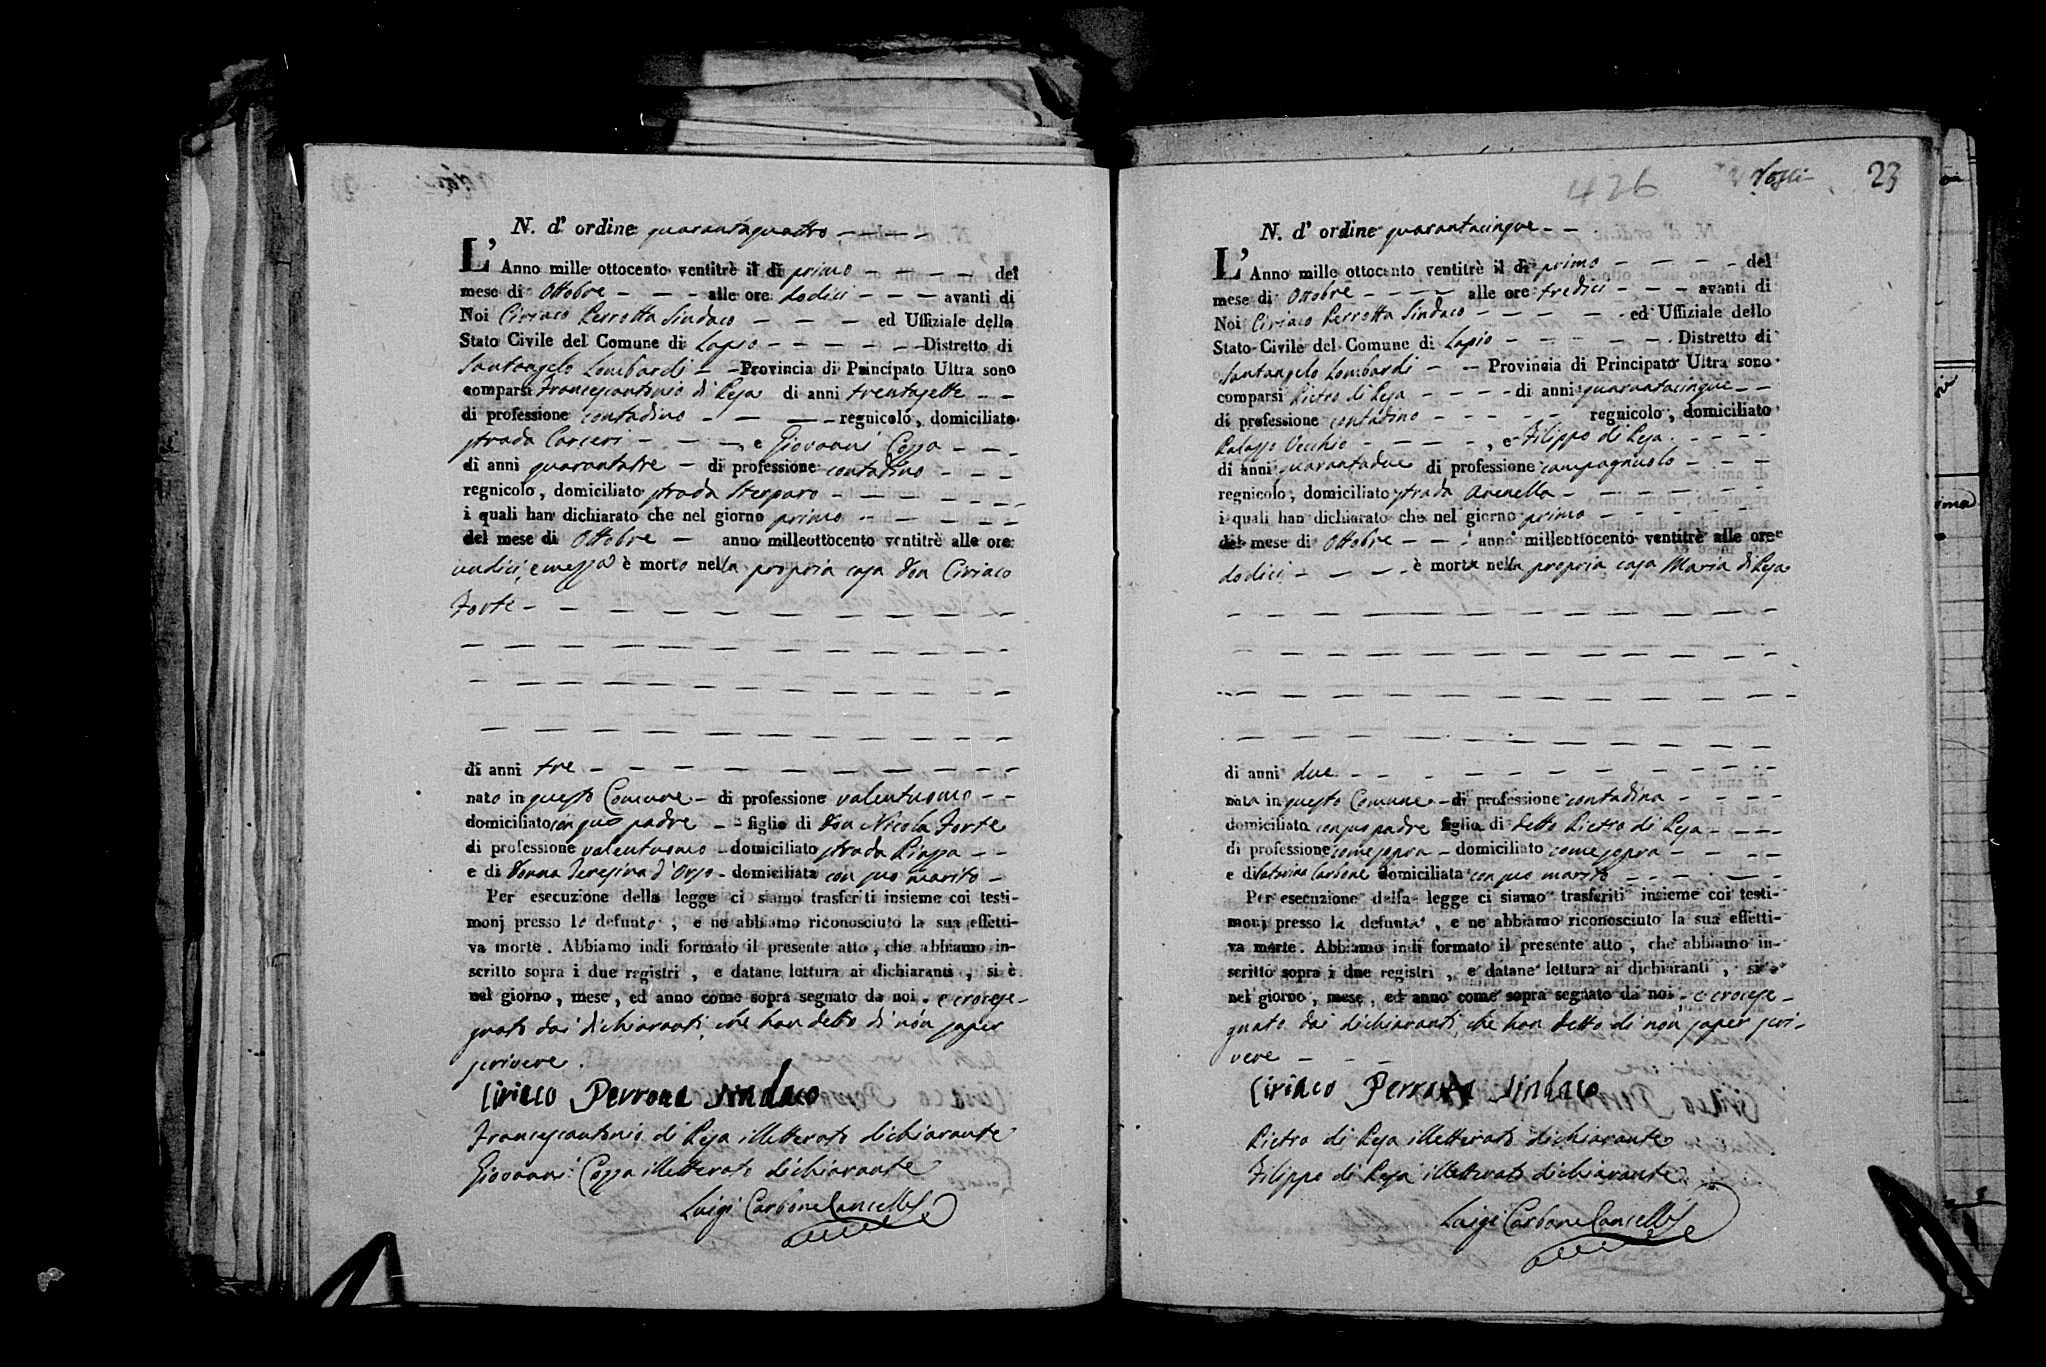 N. d' ordine quarantaquattro
L' Anno mille ottocento ventitrè il dì primo del
mese di Ottobre alle ore dodici avanti di
Noi Ciriaco Perrotta Sindaco ed Uffiziale dello
Stato Civile del Comune di Lapio Distretto di
Santangelo Lombardi Provincia di Principato Ultra sono
comparsi Francescantonio di Peja di anni trentasette
di professione contadino regnicolo, domiciliato
strada Carceri e Giovanni Cozza
di anni quarantatre di professione contadino
regnicolo, domiciliato strada Sterparo
i quali han dichiarato che nel giorno primo
del mese di Ottobre anno milleottocento ventitrè alle ore
undici, e mezza è morto nella propria casa Don Ciriaco
Forte
di anni tre
nato in questo Comune di professione valentuomo
domiciliato con suo padre figlio di Don Nicola Forte
di professione valentuomo domiciliato strada Piazza
e di Donna Teresina d'Orso domiciliata con suo marito
Per esecuzione della legge ci siamo trasferiti insieme coi testi-
monj presso lo defunto, e ne abbiamo riconosciuto la sua effetti-
va morte. Abbiamo indi formato il presente atto, che abbiamo in-
scritto sopra i due registri, e datane lettura ai dichiaranti, si è
nel giorno, mese, ed anno come sopra segnato da noi. e crocese-
gnato dai dichiaranti, che han detto di non saper
scrivere.
Ciriaco Perrotta Sindaco
Francescantonio di Peja illetterato dichiarante
Giovanni Cozza illetterato dichiarante
Luigi Carbone Cancell
426
23
N. d' ordine quarantacinque
L' Anno mille ottocento ventitrè il dì primo del
mese di Ottobre alle ore tredici avanti di
Noi Ciriaco Perrotta Sindaco ed Uffiziale dello
Stato Civile del Comune di Lapio Distretto di
Santangelo Lombardi Provincia di Principato Ultra sono
comparsi Pietro di Peja di anni quarantacinque
di professione contadino regnicolo, domiciliato
Palazzo Vecchio, e Filippo di Peja
di anni quarantadue di professione campagnuolo
regnicolo, domiciliato strada Arenella
i quali han dichiarato che nel giorno primo
del mese di Ottobre anno milleottocento ventitrè alle ore
dodici è morta nella propria casa Maria di Peja
di anni due
nata in questo Comune di professione contadina
domiciliata con suo padre figlia di detto Pietro di Peja
di professione come sopra domiciliato come sopra
e di Carbone domiciliata con suo marito
Per esecuzione della legge ci siamo trasferiti insieme coi testi-
monj presso la defunta, e ne abbiamo riconosciuto la sua effetti-
va morte. Abbiamo indi formato il presente atto, che abbiamo in-
scritto sopra i due registri, e datane lettura ai dichiaranti, si è
nel giorno, mese, ed anno come sopra segnato da noi. e crocese-
gnato dai dichiaranti, che han detto di non saper scri-
vere
Ciriaco Perrotta Sindaco
Pietro di Peja illetterato dichiarante
Filippo di Peja illetterato dichiarante
Luigi Carbone Cancell